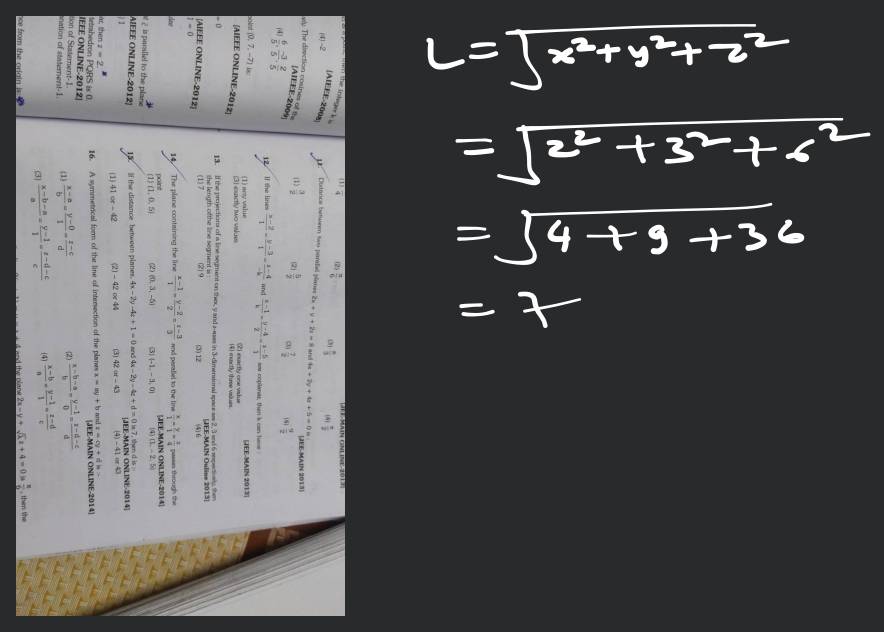 L = √x²+y²+z²
= √2² + 3² + 6²
= √4 + 9 + 36
= 7
(4) -2
[AIEEE-2008]
[AIEEE-2009]
point (0, 7, -7) is:
[AIEEE ONLINE-2012]
= 0
[AIEEE ONLINE-2012]
] = 0
is parallel to the plane
[AIEEE ONLINE-2012]
, then z = 2.
tetrahedron PQRS is 0.
[AIEEE ONLINE-2012]
nation of Statement-1.
nation of statement-1.
nce from the origin is
[JEE-MAIN ONLINE-2013]
11. Distance between two parallel planes 2x + y + 2z = 8 and 4x + 2y + 4z + 5 = 0 is
[JEE-MAIN 2013]
(1) 3/2 (2) 5/2 (3) 7/2 (4) 9/2
12. If the lines (x-2)/1 = (y-3)/1 = (z-4)/-k and (x-1)/k = (y-4)/2 = (z-5)/1 are coplanar, then k can have :
[JEE-MAIN 2013]
(1) any value (2) exactly one value
(3) exactly two values (4) exactly three values.
13. If the projections of a line segment on the x, y and z-axes in 3-dimensional space are 2, 3 and 6 respectively, then
the length of the line segment is : [JEE-MAIN Online 2013]
(1) 7 (2) 9 (3) 12 (4) 6
14. The plane containing the line (x-1)/1 = (y-2)/2 = (z-3)/3 and parallel to the line x/1 = y/1 = z/4 passes through the
point [JEE-MAIN ONLINE-2014]
(1) (1, 0, 5) (2) (0, 3, -5) (3) (-1, -3, 0) (4) (1, -2, 5)
15. If the distance between planes, 4x - 2y -4z + 1 = 0 and 4x - 2y -4z + d = 0 is 7, then d is :-
[JEE-MAIN ONLINE-2014]
(1) 41 or - 42 (2) - 42 or 44 (3) 42 or - 43 (4) - 41 or 43
16. A symmetrical form of the line of intersection of the planes x = ay + b and z = cy + d is :-
[JEE-MAIN ONLINE-2014]
(1) (x-a)/b = (y-0)/1 = (z-c)/d (2) (x-b-a)/b = (y-1)/0 = (z-d-c)/d
(3) (x-b-a)/a = (y-1)/1 = (z-d-c)/c (4) (x-b)/a = (y-1)/1 = (z-d)/c
and the plane 2x - y + √λ z + 4 = 0 is π/6, then the